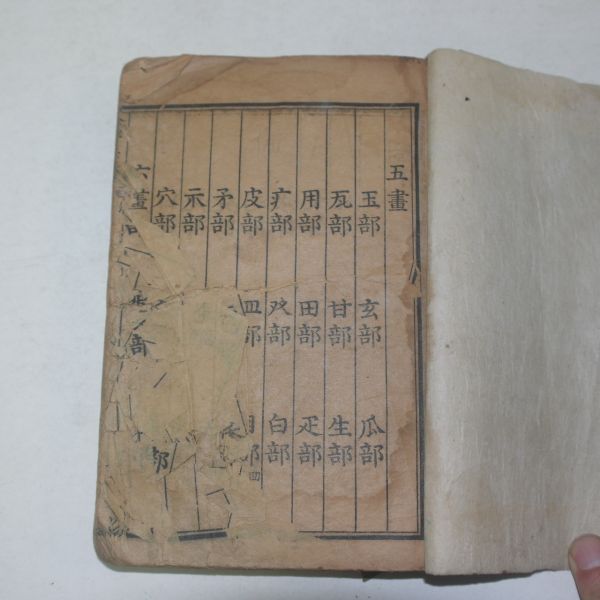 五畫
玉部 玄部 瓜部
瓦部 甘部 生部
用部 田部 疋部
疒部 癶部 白部
皮部 皿部 目部
矛部
示部
穴部
六畫